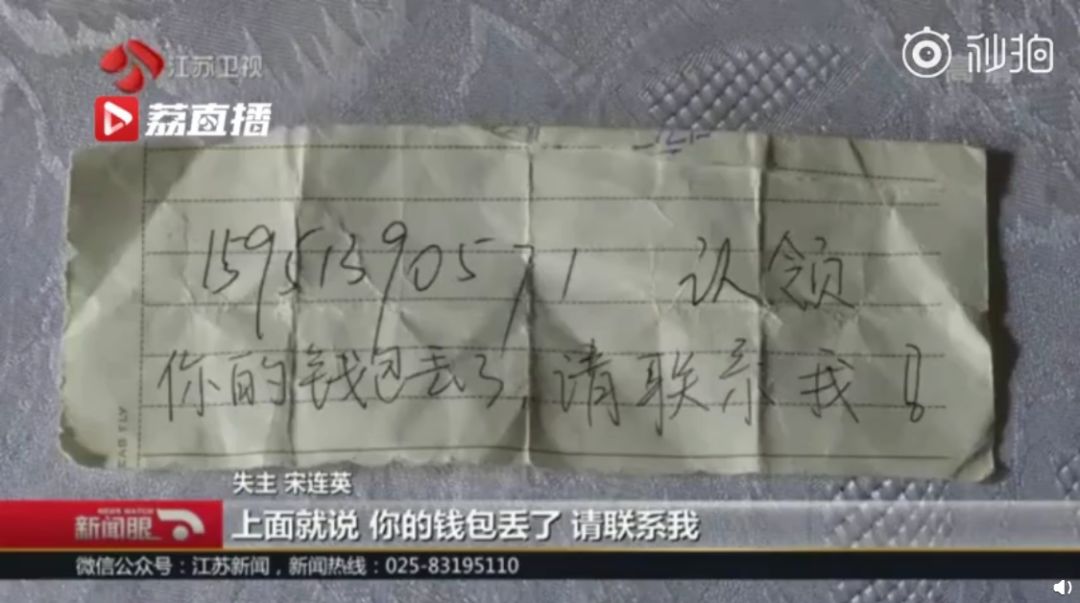 江苏卫视
秒拍
荔直播
15951390571 认领
你的钱包丢了,请联系我!
CAB FLY
失主 宋连英
NEWS WATCH
新闻眼
上面就说 你的钱包丢了 请联系我
微信公众号:江苏新闻,新闻热线:025-83195110